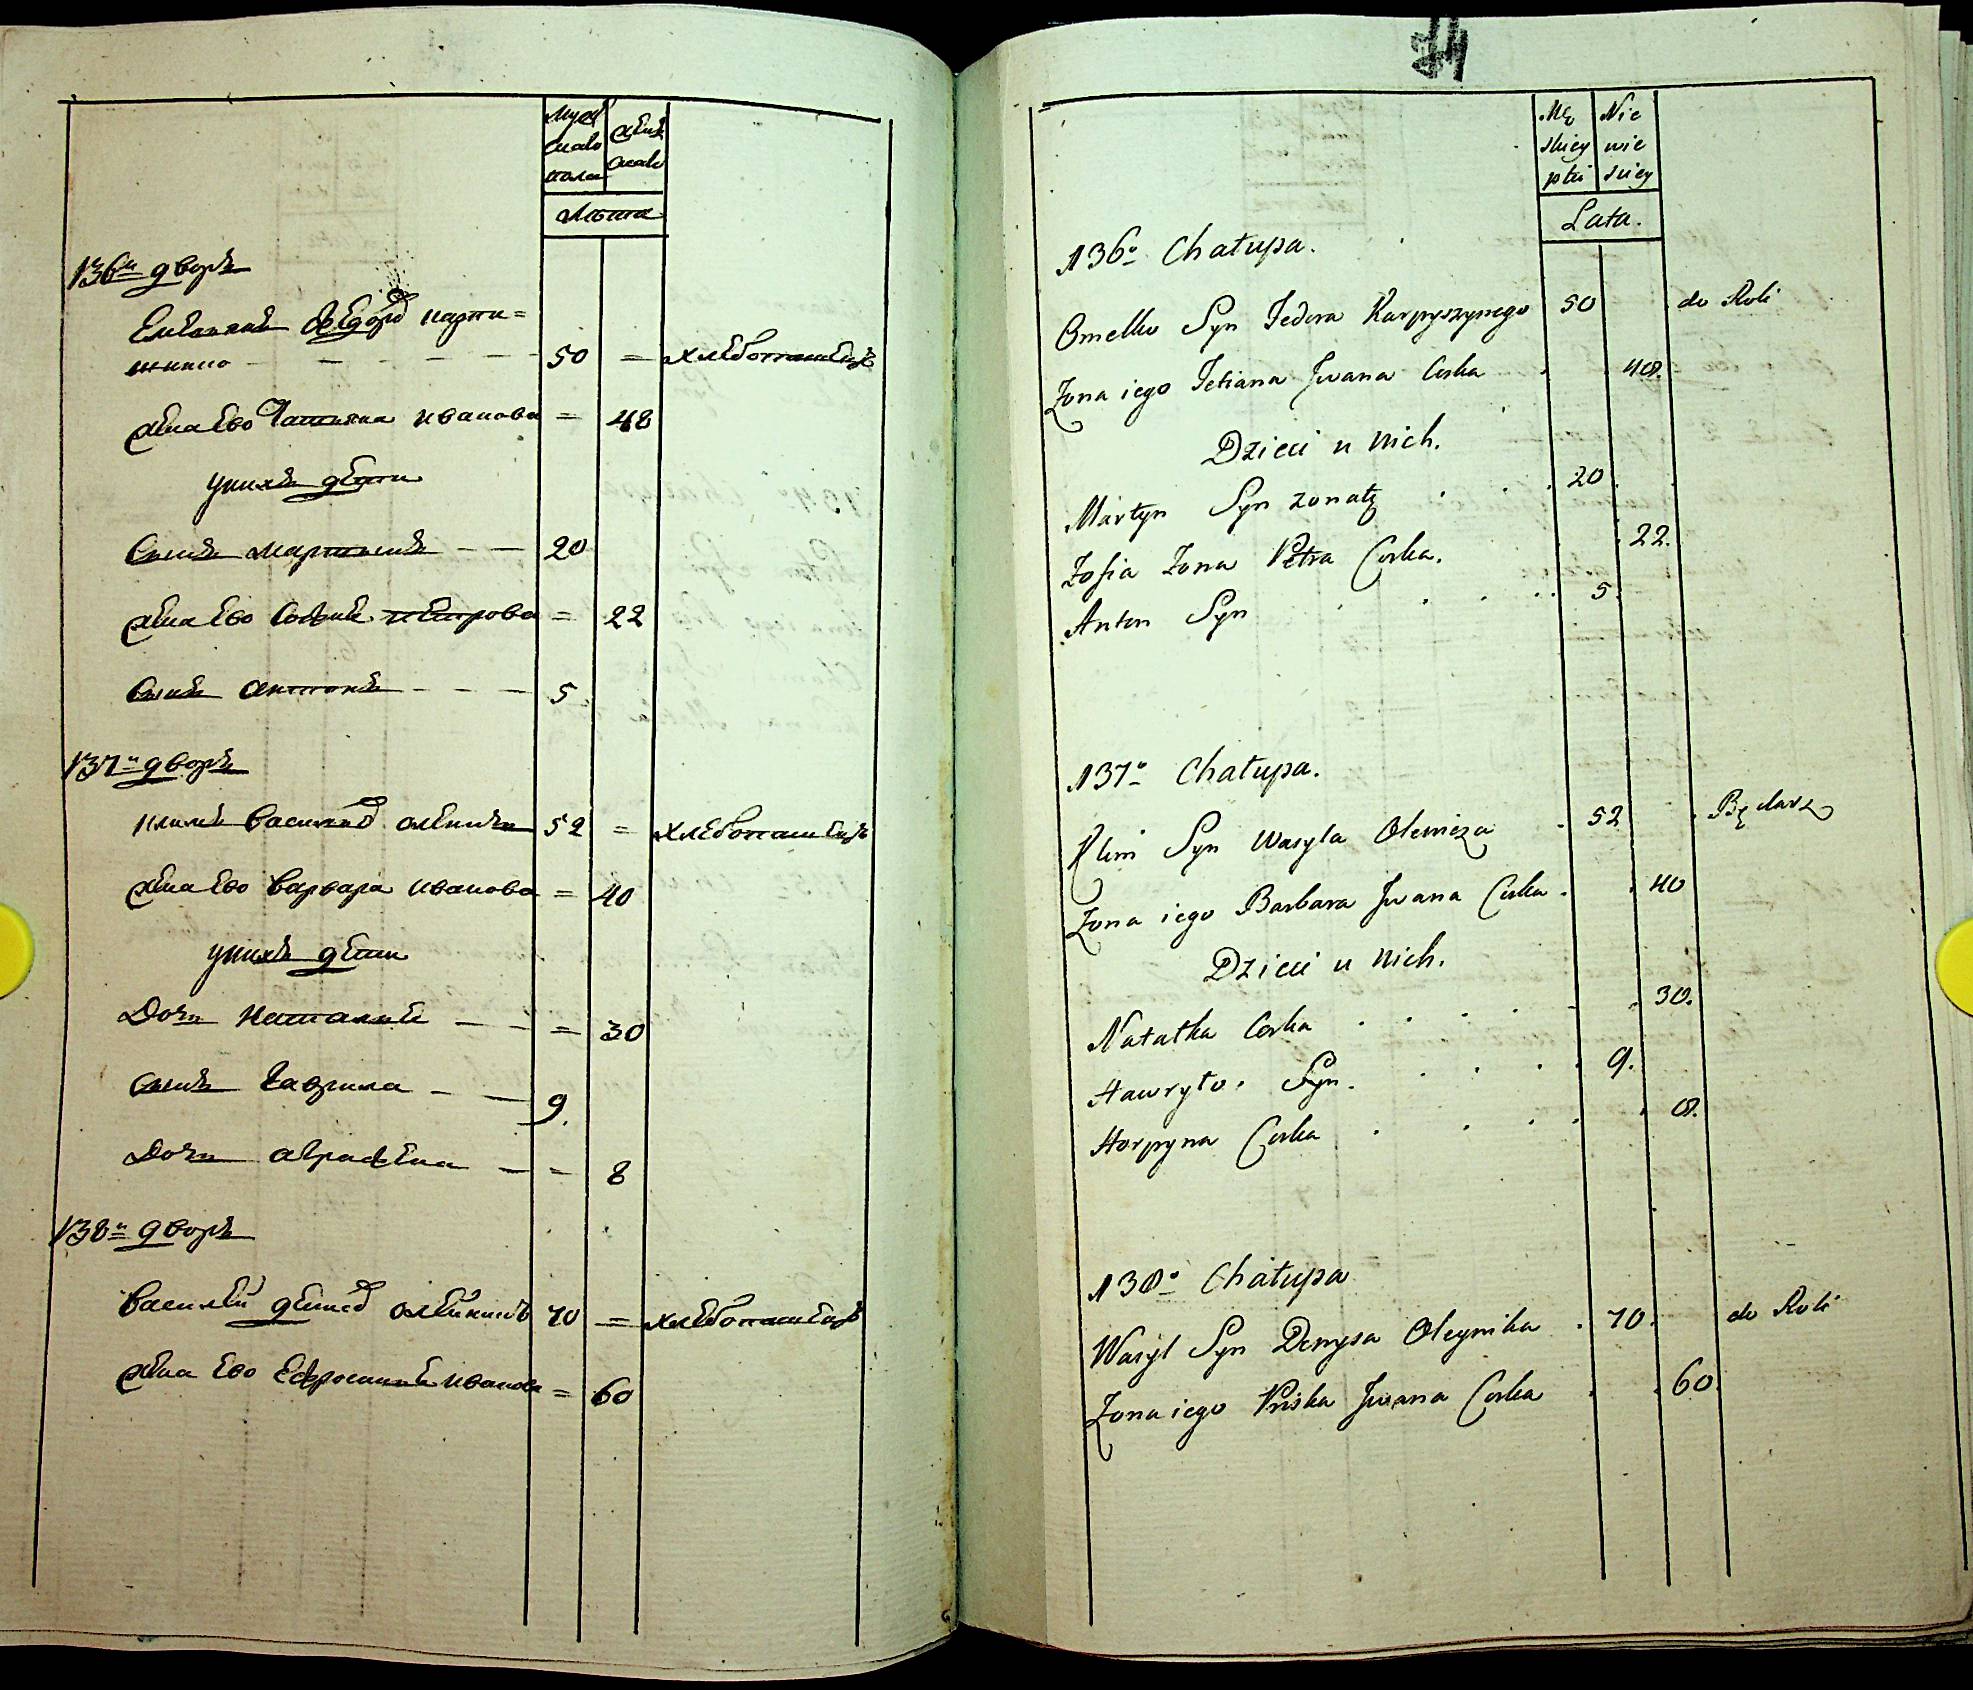 Муж
скаго
пола
Женс
скаго
Лѣта
136й дворъ
Емельянъ Федоровъ карпи=
шинъ
50
=
хлѣбопашецъ
жена ево Татьяна иванова
=
48
у нихъ дѣти
Сынъ мартынъ
20
жена ево София петрова
=
22
Сынъ антонъ
5
137й дворъ
климъ василиев
52
=
хлѣбопашецъ
жена ево варвара иванова
=
40
у нихъ дѣти
Дочь наталия
=
30
сынъ гаврила
9.
Дочь аграфена
=
8
138й дворъ
василей олейникъ
70
=
хлѣбопашецъ
жена ево Ефросиния иванова
=
60
74
Mę
skiey
płci
Nie
wie
skiey
Lata.
136o Chałupa.
Omelko Syn Fedora Karpyszynego
50
do Roli
Zona iego Tetiana Jwana Corka
48.
Dzieci u nich.
Martyn Syn zonaty
20
Zofia Zona Petra Corka.
22.
Anton Syn
5.
137o Chałupa.
Klim Syn Wasyla
52
Bednarz
Zona iego Barbara Jwana Corka.
40
Dzieci u nich.
Natałka Corka
30.
Hawryło. Syn.
9.
Horpyna Corka
8.
138o Chałupa
Wasyl Syn Demysa Oleynika
70.
do Roli
Zona iego Priska Jwana Corka
60.